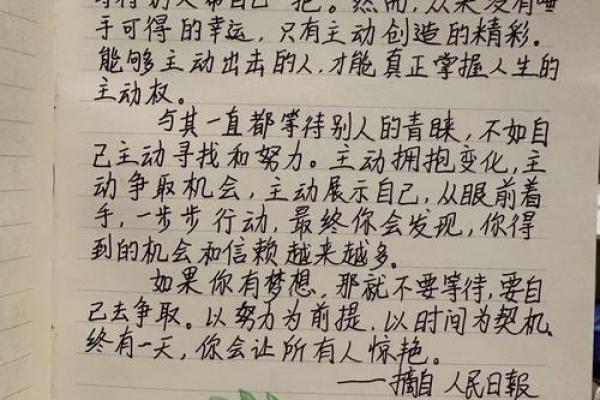 等待别人帮自己一把。然而,从来没有唾
手可得的幸运,只有主动创造的精彩。
能够主动出击的人,才能真正掌握人生的
主动权。
与其一直都等待别人的青睐,不如自
己主动寻找和努力。主动拥抱变化,主
动争取机会,主动展示自己,从眼前着
手,一步步行动,最终你会发现,你得
到的机会和信赖越来越多。
如果你有梦想,那就不要等待,要自
己去争取。以努力为前提,以时间为契机、
终有一天,你会让所有人惊艳。
——摘自 人民日報